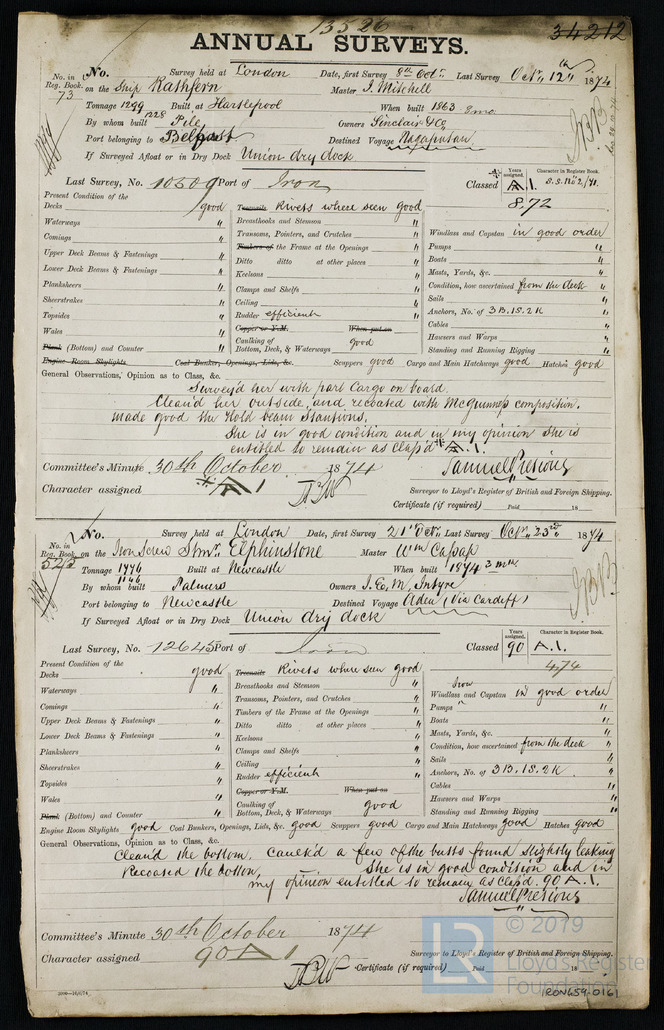 13526
34212
ANNUAL SURVEYS.
No. in Reg. Book. 73 No. Survey held at London Date, first Survey 8th Octr. Last Survey Octr. 12th 1874
on the Ship Rathfern Master J. Mitchell
Tonnage 1299 1228 Built at Hartlepool When built 1863 2mo.
By whom built Pile Owners Sinclair & Co
Port belonging to Belfast Destined Voyage
If Surveyed Afloat or in Dry Dock Union dry dock
Last Survey, No. 10509 Port of Iron Classed Years assigned. A.1. Character in Register Book. S.S. No. 2/71.
8.72
Present Condition of the
Decks good Treenails Rivets where seen good
Waterways " Breasthooks and Stemson " Windlass and Capstan in good order
Comings " Transoms, Pointers, and Crutches " Pumps "
Upper Deck Beams & Fastenings " Timbers of the Frame at the Openings " Boats "
Lower Deck Beams & Fastenings " Ditto ditto at other places " Masts, Yards, &c. "
Planksheers " Keelsons " Condition, how ascertained from the deck
Sheerstrakes " Clamps and Shelfs " Sails "
Topsides " Ceiling " Anchors, No. of 3B.1S.2K "
Wales " Rudder efficient Cables "
Plank (Bottom) and Counter " Copper or Y.M. When put on Hawsers and Warps "
Caulking of Bottom, Deck, & Waterways good Standing and Running Rigging "
Engine Room Skylights Coal Bunker, Openings, Lids, &c. Scuppers good Cargo and Main Hatchways good Hatches good
General Observations, Opinion as to Class, &c.
Survey'd her with part Cargo on board.
Clean'd her outside, and recoated with McGunness composition.
made good the Hold beam Stantions.
She is in good condition and in my opinion she is
entitled to remain as Class'd A.1.
Committee's Minute 30th October 1874 Samuel Presious
Character assigned A 1 Surveyor to Lloyd's Register of British and Foreign Shipping.
Certificate (if required) Paid 18
No. in Reg. Book. 525 No. Survey held at London Date, first Survey 21st Octr. Last Survey Octr. 23rd 1874
on the Iron Screw Stmr. Elphinstone Master Wm Capap
Tonnage 1776 1146 Built at Newcastle When built 1874 3 mo.
By whom built Palmers Owners J. & M. Intyre
Port belonging to Newcastle Destined Voyage Aden (Via Cardiff)
If Surveyed Afloat or in Dry Dock Union dry dock
Last Survey, No. 12645 Port of Iron Classed Years assigned. 90 Character in Register Book. A.1.
4.74
Present Condition of the
Decks good Treenails Rivets where seen good
Waterways " Breasthooks and Stemson " Windlass and Capstan Iron in good order
Comings " Transoms, Pointers, and Crutches " Pumps "
Upper Deck Beams & Fastenings " Timbers of the Frame at the Openings " Boats "
Lower Deck Beams & Fastenings " Ditto ditto at other places " Masts, Yards, &c. "
Planksheers " Keelsons " Condition, how ascertained from the deck
Sheerstrakes " Clamps and Shelfs " Sails "
Topsides " Ceiling " Anchors, No. of 3B.1S.2K. "
Wales " Rudder efficient " Cables "
Plank (Bottom) and Counter " Copper or Y.M. When put on Hawsers and Warps "
Caulking of Bottom, Deck, & Waterways good Standing and Running Rigging "
Engine Room Skylights good Coal Bunkers, Openings, Lids, &c. good Scuppers good Cargo and Main Hatchways good Hatches good
General Observations, Opinion as to Class, &c.
Clean'd the bottom. Caulk'd a few of the butts found slightly leaking
Recoated the bottom, She is in good condition and in
my opinion entitled to remain as Class'd. 90 A.1.
Samuel Presious
Committee's Minute 30th October 1874
Character assigned 90 A 1 Surveyor to Lloyd's Register of British and Foreign Shipping.
Certificate (if required) Paid 18
© 2019
Lloyd's Register
Foundation
IRON659-0161